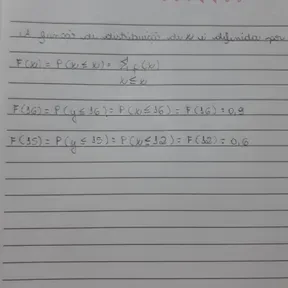 A função de distribuição de X é definida por
F(x) = P(X ≤ x) = Σ f(x)
x ≤ x
F(16) = P(y ≤ 16) = F(x ≤ 16) = F(16) = 0,9
F(15) = P(y ≤ 15) = P(x ≤ 12) = F(12) = 0,6